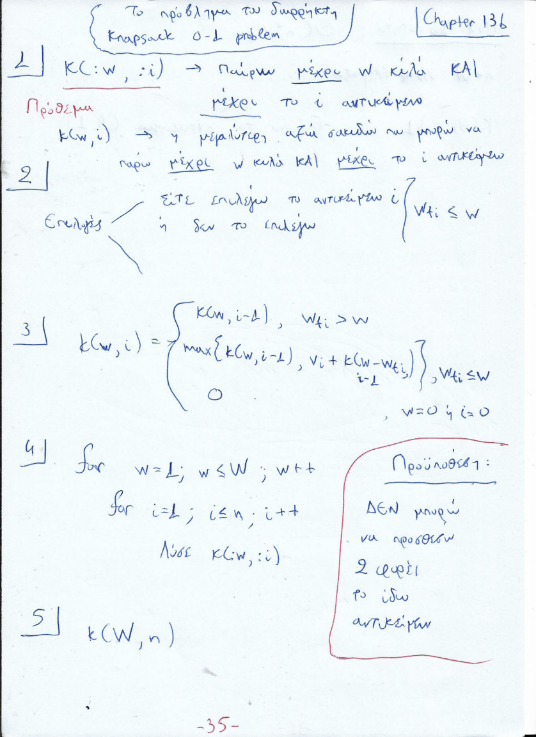 Το πρόβλημα του διαρρήκτη
Knapsack 0-1 problem
Chapter 13b
1] K(:w, :i) → Παίρνω μέχρι w κιλά ΚΑΙ
μέχρι το i αντικείμενο
Πρόθεμα
k(w,i) → η μεγαλύτερη αξία σακιδίου που μπορώ να
πάρω μέχρι w κιλά ΚΑΙ μέχρι το i αντικείμενο
2]
Επιλογές
είτε επιλέγω το αντικείμενο i
ή δεν το επιλέγω
wti ≤ w
3] k(w,i) = { k(w,i-1), wti > w
max{k(w,i-1), vi + k(w-wti, i-1)}, wti ≤ w
0 , w=0 ή i=0
4] for w=1; w≤W; w++
for i=1; i≤n; i++
λύσε k(:w, :i)
Προϋπόθεση:
ΔΕΝ μπορώ
να προσθέσω
2 φορές
το ίδιο
αντικείμενο
5] k(W,n)
-35-